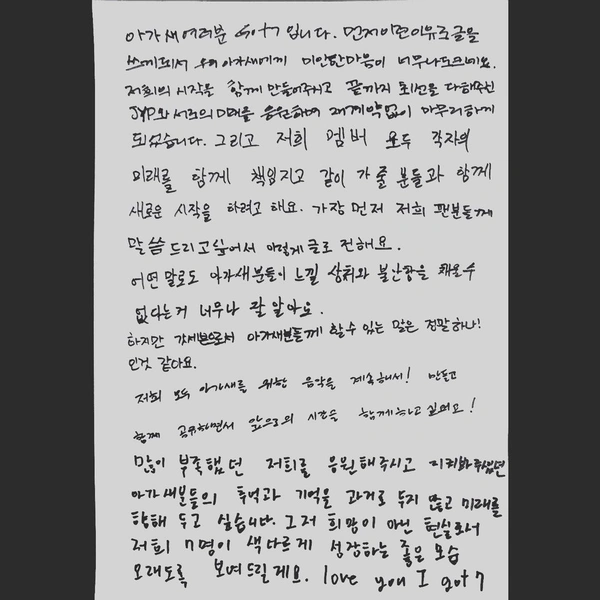 아가새 여러분 Got7 입니다. 먼저 이런 이유로 글을
쓰게되서 우리 아가새에게 미안한마음이 너무나도크네요.
저희의 시작을 함께 만들어주시고 끝까지 최선을 다해주신
JYP와 서로의 미래를 응원하며 재계약없이 마무리하게
되었습니다. 그리고 저희 멤버 모두 각자의
미래를 함께 책임지고 같이 가줄 분들과 함께
새로운 시작을 하려고 해요. 가장 먼저 저희 팬분들께
말씀 드리고싶어서 이렇게 글로 전해요.
어떤 말로도 아가새분들이 느낄 상처와 불안함을 채울수
없다는거 너무나 잘 알아요.
하지만 갓세븐으로서 아가새분들께 할 수 있는 말은 정말 하나!
인것 같아요.
저희 모두 아가새를 위한 음악을 계속해서! 만들고
함께 공유하면서 앞으로의 시간을 함께하고 싶어요!
많이 부족했던 저희를 응원해주시고 지켜봐주셨던
아가새분들의 추억과 기억을 과거로 두지 않고 미래를
향해 두고 싶습니다. 그저 희망이 아닌 현실로서
저희 7명이 색다르게 성장하는 좋은 모습
오래도록 보여드릴게요. love you I got7